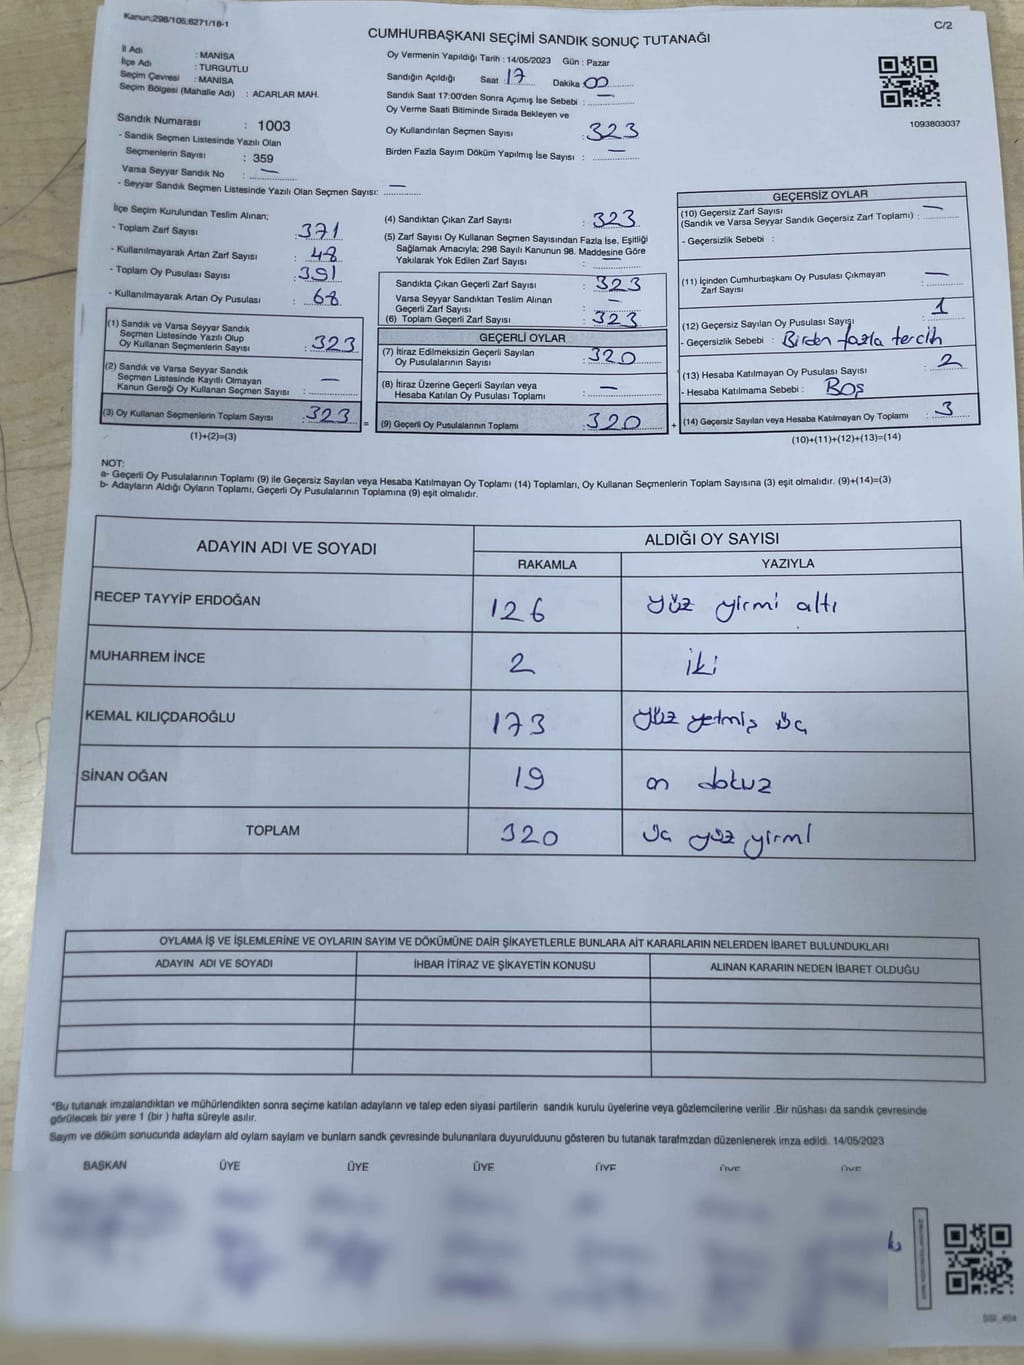 Kanun;298/105;6271/18-1
C/2
CUMHURBAŞKANI SEÇİMİ SANDIK SONUÇ TUTANAĞI
İl Adı : MANİSA
İlçe Adı : TURGUTLU
Seçim Çevresi : MANİSA
Seçim Bölgesi (Mahalle Adı) : ACARLAR MAH.
Sandık Numarası : 1003
- Sandık Seçmen Listesinde Yazılı Olan
Seçmenlerin Sayısı : 359
Varsa Seyyar Sandık No : —
- Seyyar Sandık Seçmen Listesinde Yazılı Olan Seçmen Sayısı: —
Oy Vermenin Yapıldığı Tarih : 14/05/2023 Gün : Pazar
Sandığın Açıldığı Saat : 17 Dakika : 00
Sandık Saat 17:00'den Sonra Açımış İse Sebebi : —
Oy Verme Saati Bitiminde Sırada Bekleyen ve
Oy Kullandırılan Seçmen Sayısı : 323
Birden Fazla Sayım Döküm Yapılmış İse Sayısı : —
1093803037
İlçe Seçim Kurulundan Teslim Alınan;
- Toplam Zarf Sayısı : 371
- Kullanılmayarak Artan Zarf Sayısı : 48
- Toplam Oy Pusulası Sayısı : 391
- Kullanılmayarak Artan Oy Pusulası : 68
(1) Sandık ve Varsa Seyyar Sandık
Seçmen Listesinde Yazılı Olup
Oy Kullanan Seçmenlerin Sayısı : 323
(2) Sandık ve Varsa Seyyar Sandık
Seçmen Listesinde Kayıtlı Olmayan
Kanun Gereği Oy Kullanan Seçmen Sayısı : —
(3) Oy Kullanan Seçmenlerin Toplam Sayısı : 323
(1)+(2)=(3)
(4) Sandıktan Çıkan Zarf Sayısı : 323
(5) Zarf Sayısı Oy Kullanan Seçmen Sayısından Fazla İse, Eşitliği
Sağlamak Amacıyla; 298 Sayılı Kanunun 98. Maddesine Göre
Yakılarak Yok Edilen Zarf Sayısı : —
Sandıkta Çıkan Geçerli Zarf Sayısı : 323
Varsa Seyyar Sandıktan Teslim Alınan
Geçerli Zarf Sayısı : —
(6) Toplam Geçerli Zarf Sayısı : 323
GEÇERLİ OYLAR
(7) İtiraz Edilmeksizin Geçerli Sayılan
Oy Pusulalarının Sayısı : 320
(8) İtiraz Üzerine Geçerli Sayılan veya
Hesaba Katılan Oy Pusulası Toplamı : —
= (9) Geçerli Oy Pusulalarının Toplamı : 320 +
GEÇERSİZ OYLAR
(10) Geçersiz Zarf Sayısı
(Sandık ve Varsa Seyyar Sandık Geçersiz Zarf Toplamı) : —
- Geçersizlik Sebebi :
(11) İçinden Cumhurbaşkanı Oy Pusulası Çıkmayan
Zarf Sayısı : —
(12) Geçersiz Sayılan Oy Pusulası Sayışı : 1
- Geçersizlik Sebebi : Birden fazla tercih
(13) Hesaba Katılmayan Oy Pusulası Sayısı : 2
- Hesaba Katılmama Sebebi : Boş
(14) Geçersiz Sayılan veya Hesaba Katılmayan Oy Toplamı : 3
(10)+(11)+(12)+(13)=(14)
NOT:
a- Geçerli Oy Pusulalarının Toplamı (9) ile Geçersiz Sayılan veya Hesaba Katılmayan Oy Toplamı (14) Toplamları, Oy Kullanan Seçmenlerin Toplam Sayısına (3) eşit olmalıdır. (9)+(14)=(3)
b- Adayların Aldığı Oyların Toplamı, Geçerli Oy Pusulalarının Toplamına (9) eşit olmalıdır.
ADAYIN ADI VE SOYADI ALDIĞI OY SAYISI
RAKAMLA YAZIYLA
RECEP TAYYİP ERDOĞAN 126 yüz yirmi altı
MUHARREM İNCE 2 iki
KEMAL KILIÇDAROĞLU 173 yüz yetmiş üç
SİNAN OĞAN 19 on dokuz
TOPLAM 320 üç yüz yirmi
OYLAMA İŞ VE İŞLEMLERİNE VE OYLARIN SAYIM VE DÖKÜMÜNE DAİR ŞİKAYETLERLE BUNLARA AİT KARARLARIN NELERDEN İBARET BULUNDUKLARI
ADAYIN ADI VE SOYADI İHBAR İTİRAZ VE ŞİKAYETİN KONUSU ALINAN KARARIN NEDEN İBARET OLDUĞU
*Bu tutanak imzalandıktan ve mühürlendikten sonra seçime katılan adayların ve talep eden siyasi partilerin sandık kurulu üyelerine veya gözlemcilerine verilir .Bir nüshası da sandık çevresinde
görülecek bir yere 1 (bir ) hafta süreyle asılır.
Sayım ve döküm sonucunda adayların aldı oyların sayıları ve bunların sandk çevresinde bulunanlara duyurulduunu gösteren bu tutanak tarafmzdan düzenlenerek imza edildi. 14/05/2023
BAŞKAN ÜYE ÜYE ÜYE ÜYE ÜYE ÜYE